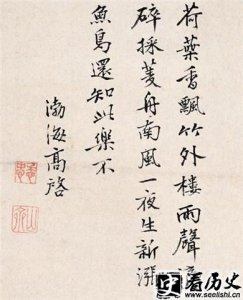 荷葉香飄竹外樓雨聲
碎採菱舟南風一夜生新漲
魚鳥還知此樂不
渤海高啓
看历史
www.seelishi.cn